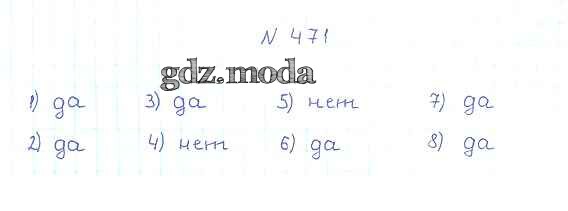 N 471
gdz.moda
1) да 3) да 5) нет 7) да
2) да 4) нет 6) да 8) да